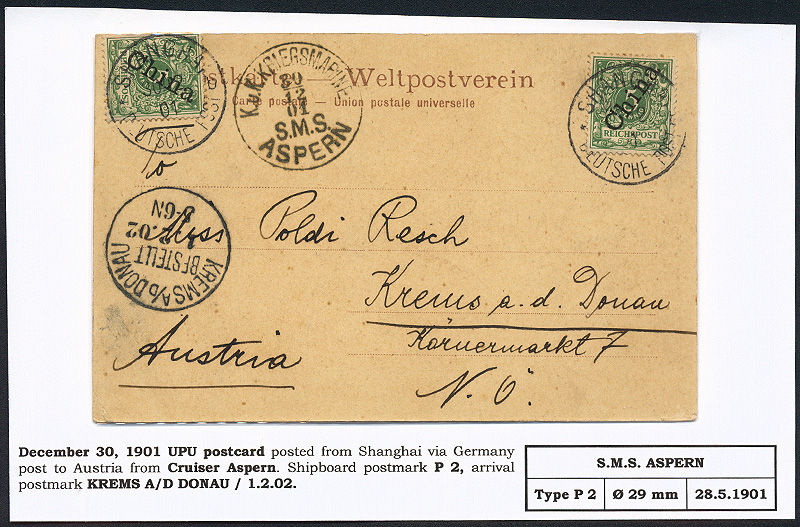 SHANGHAI
China
01
DEUTSCHE POST
Postkarte — Weltpostverein
Carte postale — Union postale universelle
K.u.K. KRIEGSMARINE
30
12
01
S.M.S.
ASPERN
SHANGHAI
China
REICHSPOST
DEUTSCHE POST
To
Miss Poldi Resch
KREMS A/D DONAU
BESTELLT
1.2.02
3-6N
Krems a. d. Donau
Körnermarkt 7
Austria
N. Ö.
December 30, 1901 UPU postcard posted from Shanghai via Germany
post to Austria from Cruiser Aspern. Shipboard postmark P 2, arrival
postmark KREMS A/D DONAU / 1.2.02.
S.M.S. ASPERN
Type P 2 Ø 29 mm 28.5.1901